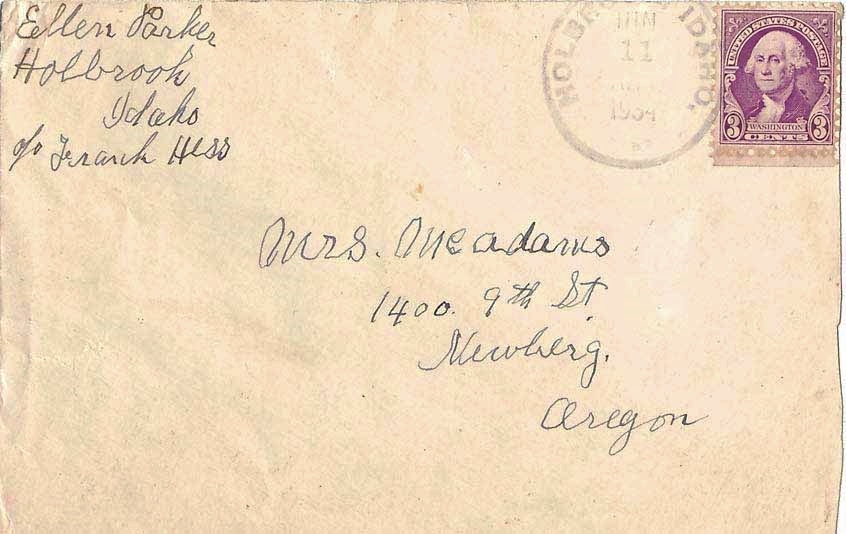 Ellen Parker
Holbrook
Idaho
c/o Frank Hess
HOLBROOK IDAHO.
JUN
11
1934
UNITED STATES POSTAGE
3 WASHINGTON 3
CENTS
Mrs. McAdams
1400. 9th St.
Newberg.
Oregon